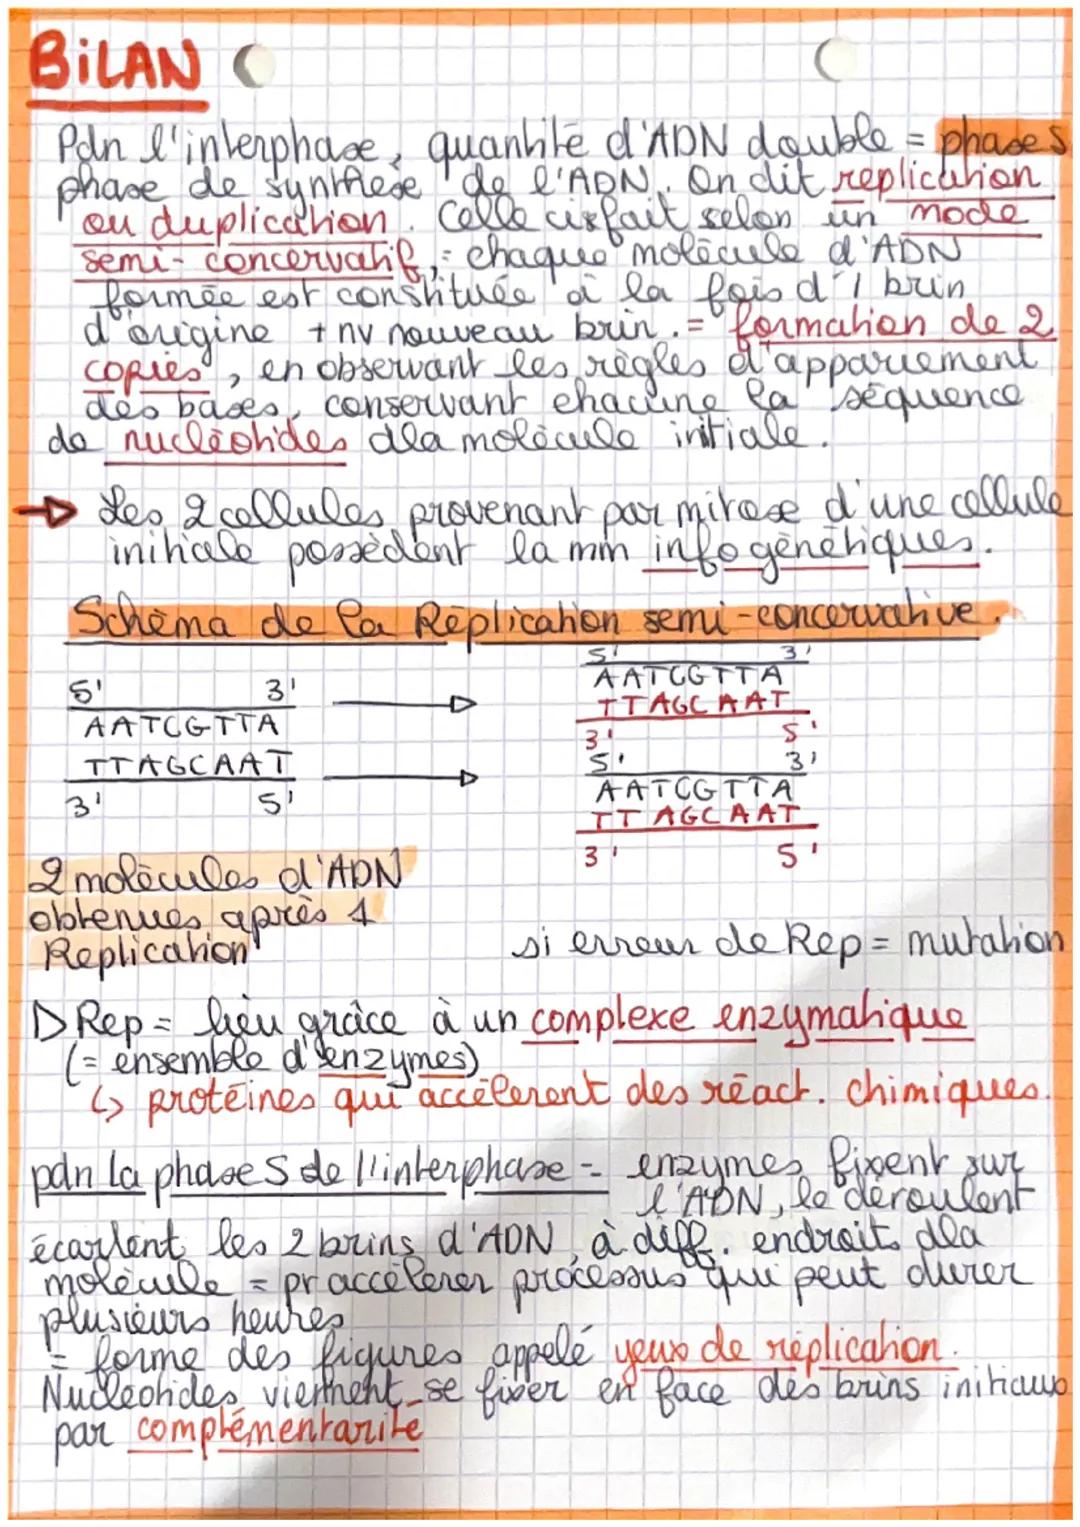 BiLAN
Pdn l'interphase, quantité d'ADN double = phase S
phase de synthèse de l'ADN. On dit replication
ou duplication. Celle ci sfait selon un mode
semi-concervatif, = chaque molécule d'ADN
formée est constituée à la fois d'1 brin
d'origine + nv nouveau brin. = formation de 2
copies, en observant les règles d'appariement
des bases, conservant chacune la séquence
de nucléotides dla molécule initiale.
Les 2 cellules provenant par mitose d'une cellule
initiale possèdent la mm info génétiques.
Schéma de la Réplication semi-concervative.
5' 3'
AATCGTTA
TTAGCAAT
3' 5'
5' 3'
AATCGTTA
TTAGCAAT
3' 5'
5' 3'
AATCGTTA
TTAGCAAT
3' 5'
2 molécules d'ADN
obtenues après 1
Replication
si erreur de Rep = mutation
Rep = lieu grâce à un complexe enzymatique
(= ensemble d'enzymes)
↳ protéines qui accélerent des réact. chimiques.
pdn la phase S de l'interphase = enzymes fixent sur
l'ADN, le déroulent
écartent les 2 brins d'ADN, à diff. endroits dla
molécule = pr accélerer processus qui peut durer
plusieurs heures
= forme des figures appelé yeux de réplication.
Nucléotides viennent se fixer en face des brins initiaux
par complémentarité